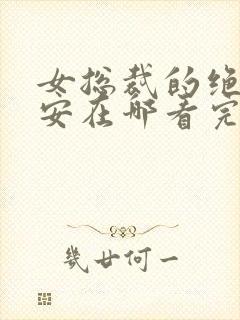 女总裁的绝
安在哪看完
几廿何一